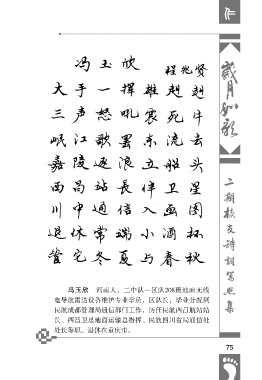 作
岁月如歌
二期校友诗词写照集
冯玉欣
程兆贤
大手一挥雄赳赳
三声怒吼震死牛
岷江歌罢东流去
嘉陵逐浪立船头
西昌站长伴卫星
川中通信入画图
退休常端小酒杯
管它冬夏与春秋
冯玉欣 河南人,二中队一区队208班地面无线
电导航雷达设备维护专业学员,区队长,毕业分配到
民航成都管理局通信部门工作,历任民航西昌航站站
长、西昌卫星地面运输总指挥、民航四川省局通信处
处长等职。退休在重庆市。
75